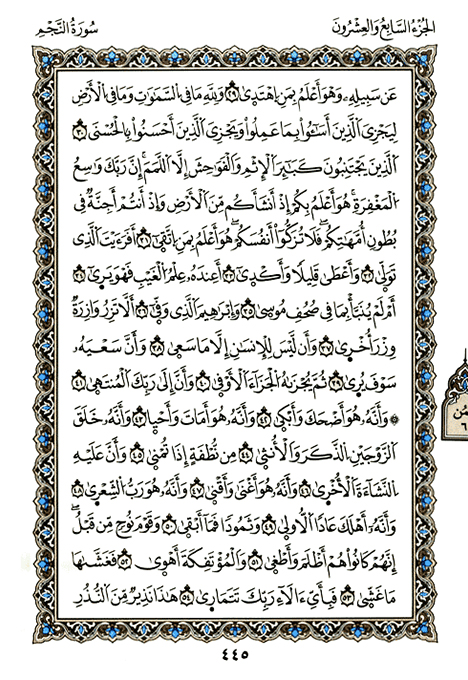 الجُزْءُ السَّابِعُ وَالعِشْرُونَ
سُورَةُ النَّجْمِ
عَن سَبِيلِهِۦ وَهُوَ أَعْلَمُ بِمَنِ اِهْتَدَىٰ ٢٩ وَلِلَّهِ مَا فِي السَّمَٰوَٰتِ وَمَا فِي الْأَرْضِ
لِيَجْزِيَ الَّذِينَ أَسَٰٓـُٔوا۟ بِمَا عَمِلُوا۟ وَيَجْزِيَ الَّذِينَ أَحْسَنُوا۟ بِالْحُسْنَى ٣٠
الَّذِينَ يَجْتَنِبُونَ كَبَٰٓئِرَ الْإِثْمِ وَالْفَوَٰحِشَ إِلَّا اللَّمَمَ إِنَّ رَبَّكَ وَٰسِعُ
الْمَغْفِرَةِ هُوَ أَعْلَمُ بِكُمُۥ إِذْ أَنشَأَكُم مِّنَ الْأَرْضِ وَإِذْ أَنتُمُۥ أَجِنَّةٌ فِي
بُطُونِ أُمَّهَٰتِكُمْ فَلَا تُزَكُّوا۟ أَنفُسَكُمْ هُوَ أَعْلَمُ بِمَنِ اِتَّقَىٰ ٣١ أَفَرَءَيْتَ الَّذِي
تَوَلَّىٰ ٣٢ وَأَعْطَىٰ قَلِيلًا وَأَكْدَىٰ ٣٣ أَعِندَهُۥ عِلْمُ الْغَيْبِ فَهُوَ يَرَىٰ ٣٤
أَمْ لَمْ يُنَبَّأْ بِمَا فِي صُحُفِ مُوسَىٰ ٣٥ وَإِبْرَٰهِيمَ الَّذِي وَفَّىٰ ٣٦ أَلَّا تَزِرُ وَازِرَةٌ
وِزْرَ أُخْرَىٰ ٣٧ وَأَن لَّيْسَ لِلْإِنسَٰنِ إِلَّا مَا سَعَىٰ ٣٨ وَأَنَّ سَعْيَهُۥ
سَوْفَ يُرَىٰ ٣٩ ثُمَّ يُجْزَىٰهُ الْجَزَآءَ الْأَوْفَىٰ ٤٠ وَأَنَّ إِلَىٰ رَبِّكَ الْمُنتَهَىٰ ٤١
وَأَنَّهُۥ هُوَ أَضْحَكَ وَأَبْكَىٰ ٤٢ وَأَنَّهُۥ هُوَ أَمَاتَ وَأَحْيَا ٤٣ وَأَنَّهُۥ خَلَقَ
الزَّوْجَيْنِ الذَّكَرَ وَالْأُنثَىٰ ٤٤ مِن نُّطْفَةٍ إِذَا تُمْنَىٰ ٤٥ وَأَنَّ عَلَيْهِ
النَّشْأَةَ الْأُخْرَىٰ ٤٦ وَأَنَّهُۥ هُوَ أَغْنَىٰ وَأَقْنَىٰ ٤٧ وَأَنَّهُۥ هُوَ رَبُّ الشِّعْرَىٰ ٤٨
وَأَنَّهُۥ أَهْلَكَ عَادًا الْأُولَىٰ ٤٩ وَثَمُودًا فَمَا أَبْقَىٰ ٥٠ وَقَوْمَ نُوحٍ مِّن قَبْلُ
إِنَّهُمْ كَانُوا۟ هُمْ أَظْلَمَ وَأَطْغَىٰ ٥١ وَالْمُؤْتَفِكَةَ أَهْوَىٰ ٥٢ فَغَشَّىٰهَا
مَا غَشَّىٰ ٥٣ فَبِأَيِّ ءَالَآءِ رَبِّكَ تَتَمَارَىٰ ٥٤ هَٰذَا نَذِيرٌ مِّنَ النُّذُرِ
٤٤٥